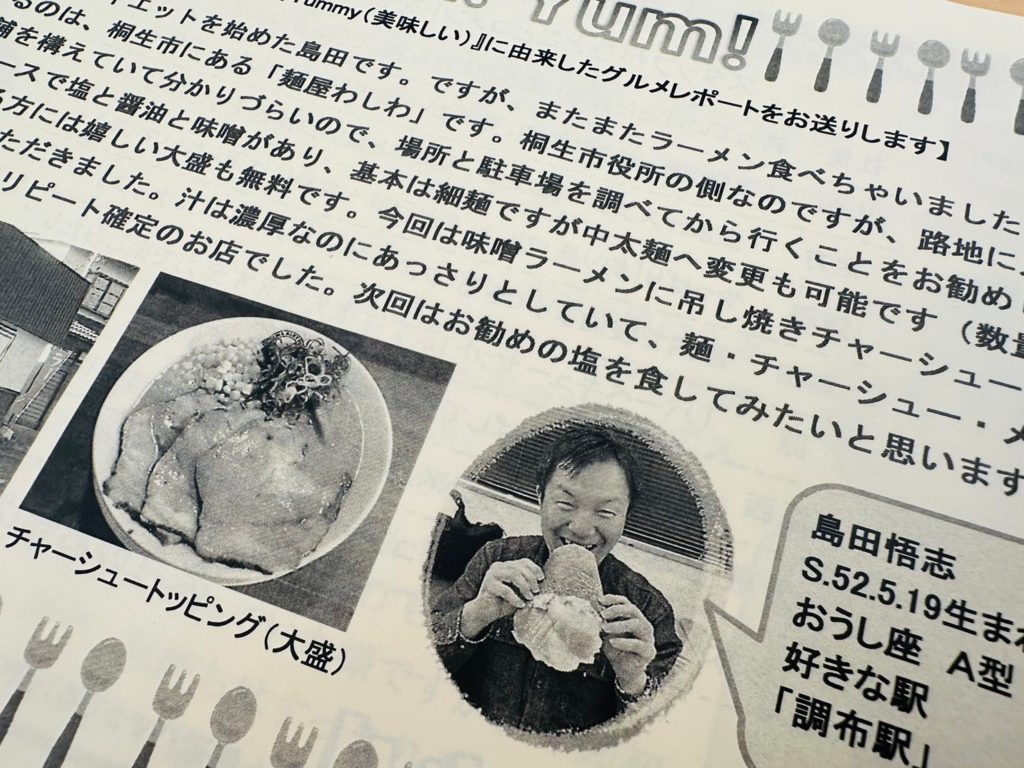 Yum!
Yummy(美味しい)』に由来したグルメレポートをお送りします】
エットを始めた島田です。ですが、またまたラーメン食べちゃいました
るのは、桐生市にある「麺屋わしわ」です。桐生市役所の側なのですが、路地に
舗を構えていて分かりづらいので、場所と駐車場を調べてから行くことをお勧め
ースで塩と醤油と味噌があり、基本は細麺ですが中太麺へ変更も可能です(数量
る方には嬉しい大盛も無料です。今回は味噌ラーメンに吊し焼きチャーシュー
ただきました。汁は濃厚なのにあっさりとしていて、麺・チャーシュー・メ
リピート確定のお店でした。次回はお勧めの塩を食してみたいと思います
チャーシュートッピング(大盛)
島田悟志
S.52.5.19生まれ
おうし座 A型
好きな駅
「調布駅」